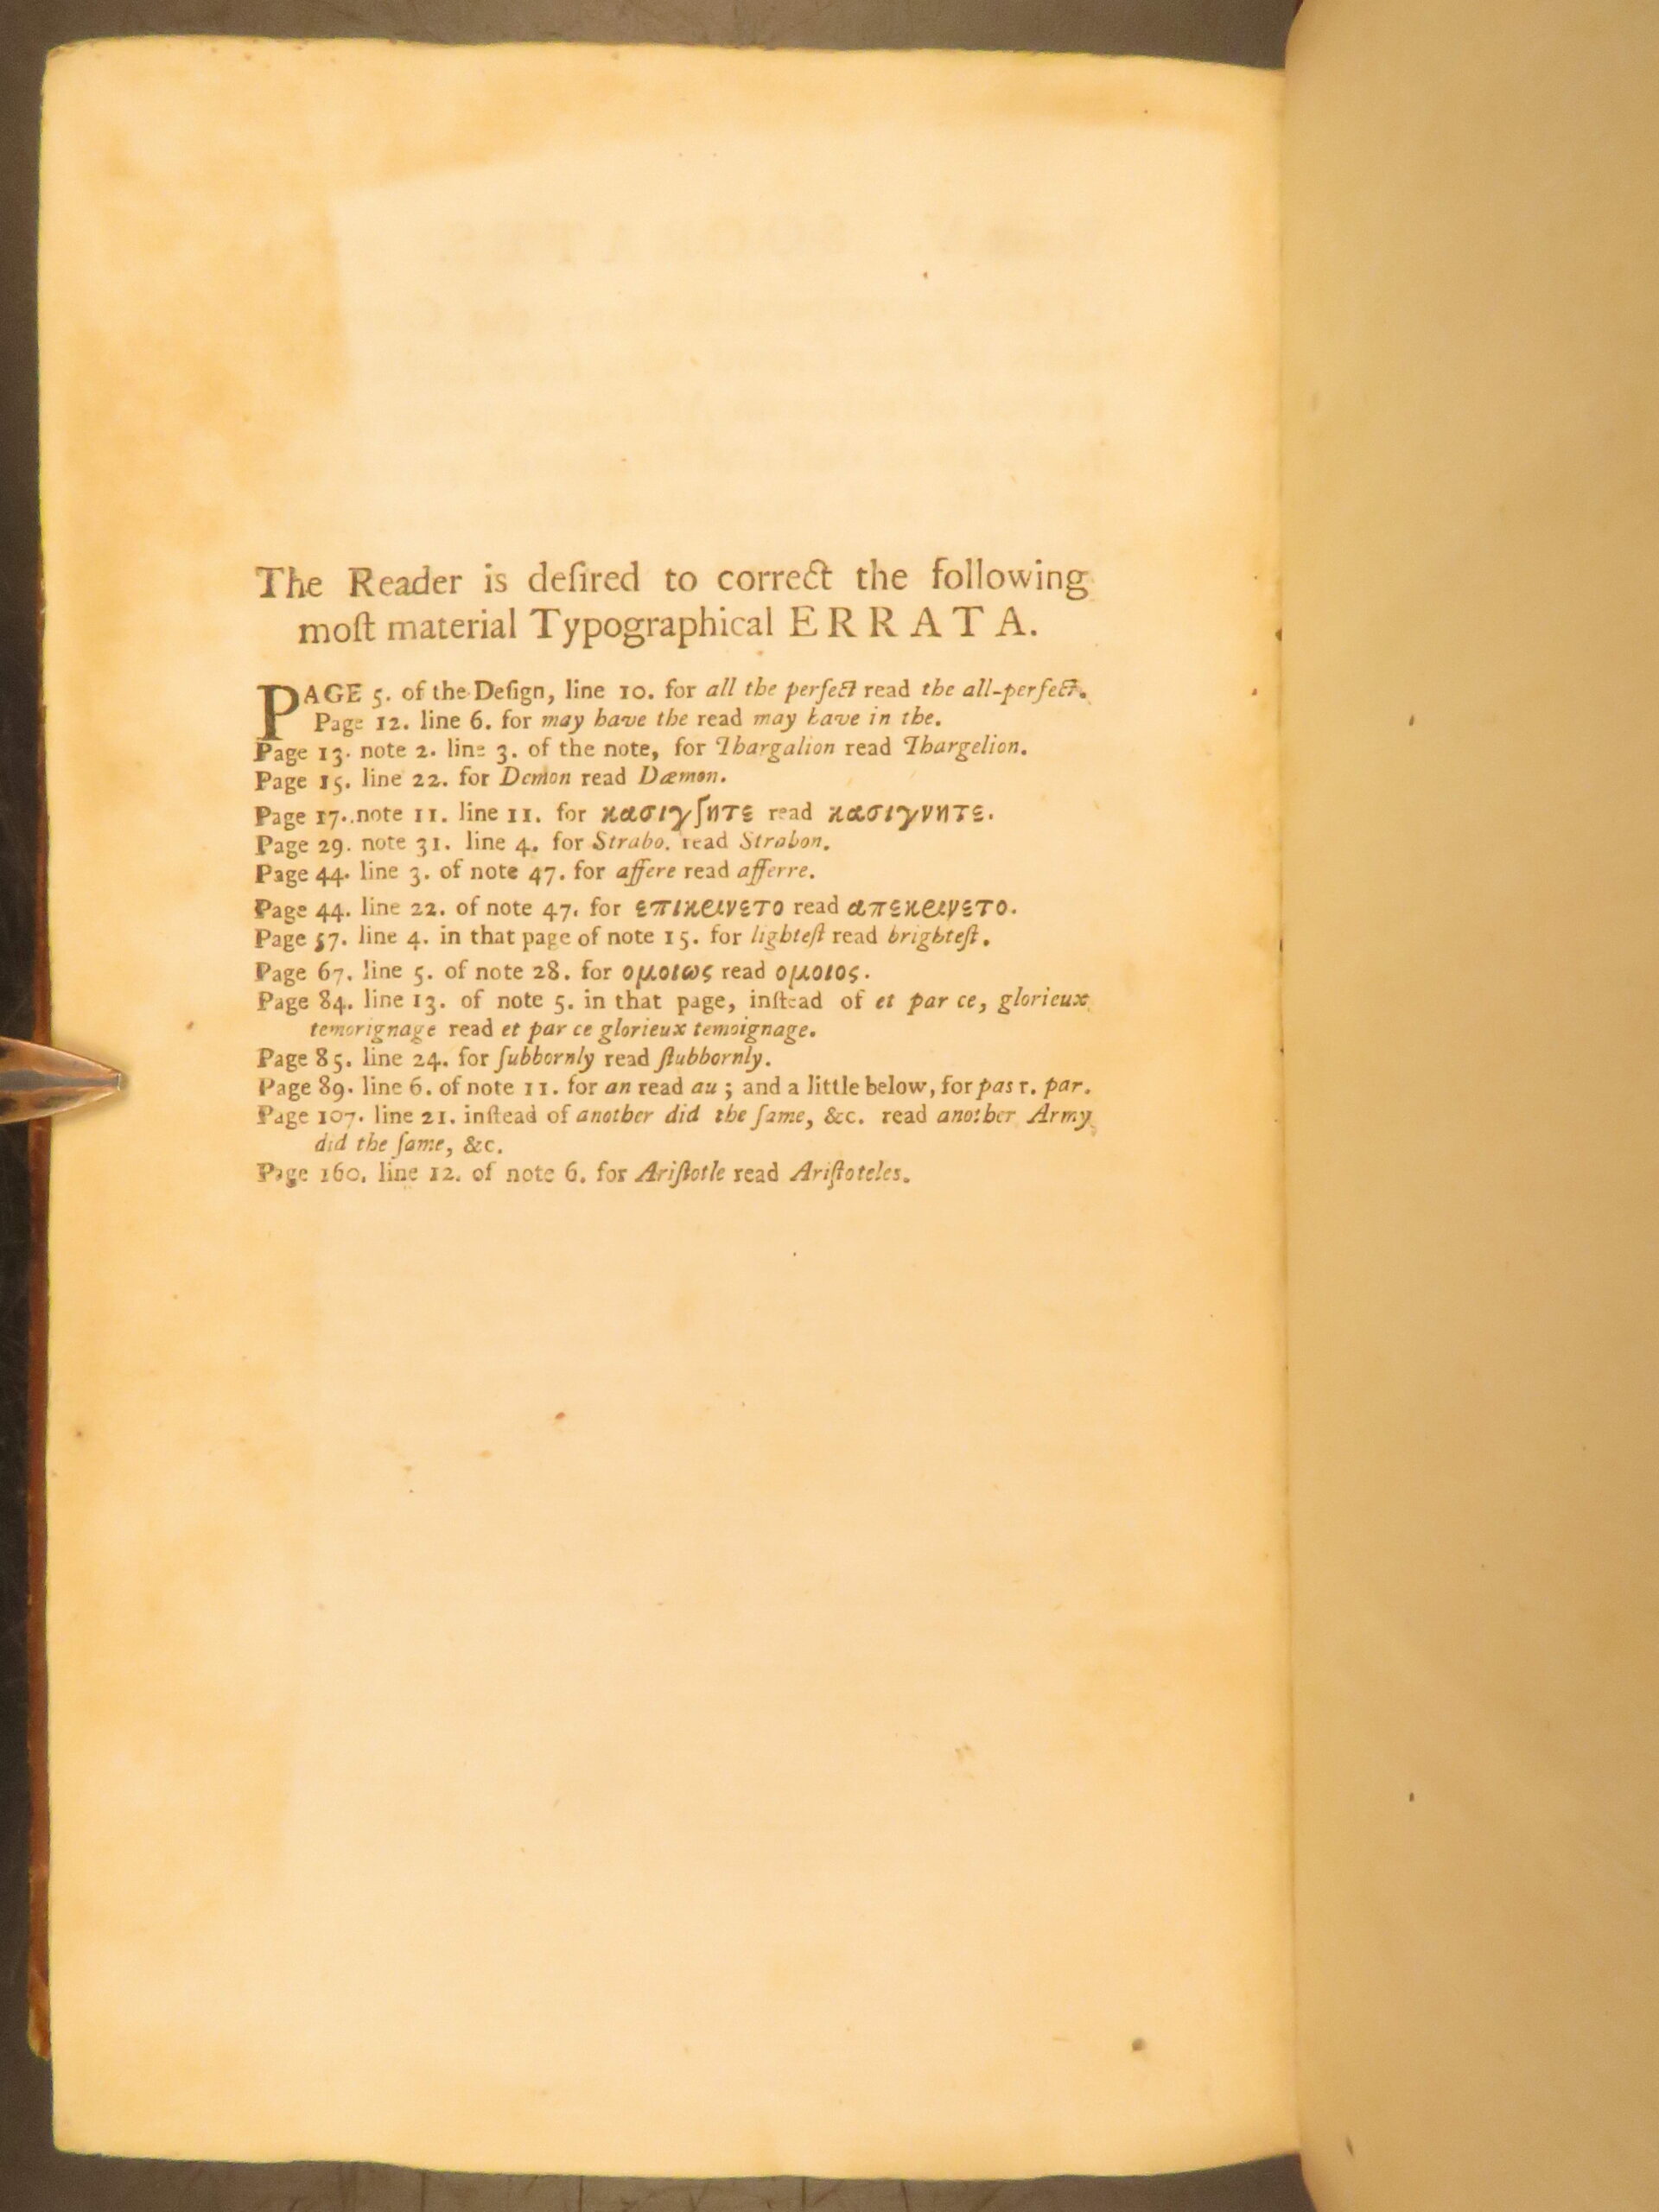 The Reader is deſired to correct the following
moſt material Typographical ERRATA.
PAGE 5. of the Deſign, line 10. for all the perfect read the all-perfect.
Page 12. line 6. for may have the read may have in the.
Page 13. note 2. line 3. of the note, for Thargalion read Thargelion.
Page 15. line 22. for Demon read Dæmon.
Page 17. note 11. line 11. for κασιγʃητε read κασιγνητε.
Page 29. note 31. line 4. for Strabo. read Strabon.
Page 44. line 3. of note 47. for affere read afferre.
Page 44. line 22. of note 47. for επικρινετο read απεκρινετο.
Page 57. line 4. in that page of note 15. for lighteſt read brighteſt.
Page 67. line 5. of note 28. for ομοιως read ομοιος.
Page 84. line 13. of note 5. in that page, inſtead of et par ce, glorieux
temorignage read et par ce glorieux temoignage.
Page 85. line 24. for ſubbornly read ſtubbornly.
Page 89. line 6. of note 11. for an read au; and a little below, for pas r. par.
Page 107. line 21. inſtead of another did the ſame, &c. read another Army
did the ſame, &c.
Page 160. line 12. of note 6. for Ariſtotle read Ariſtoteles.